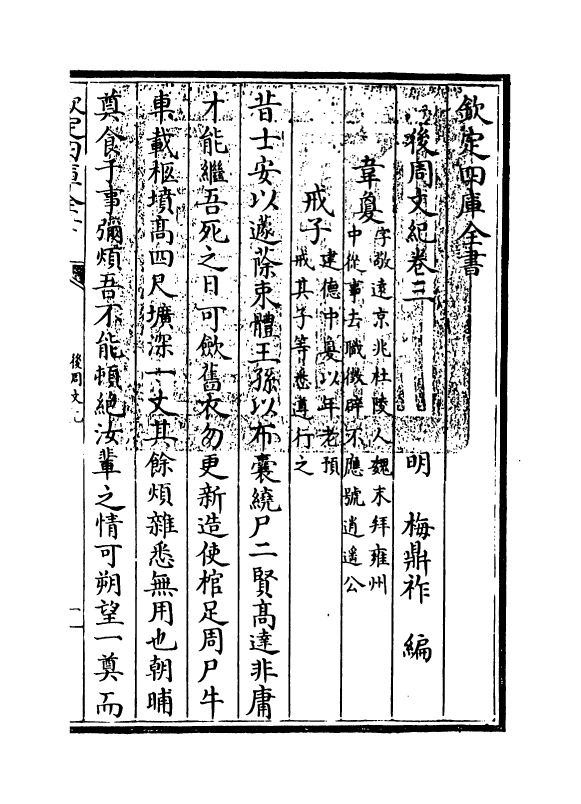 欽定四庫全書
後周文紀卷三 明 梅鼎祚 編
韋敻 字敬遠京兆杜陵人魏末拜雍州
中從事去職徵辟不應號逍遥公
戒子 建德中敻以年老預
戒其子等悉遵行之
昔士安以籧蒢束體王孫以布囊繞尸二賢高達非庸
才能繼吾死之日可歛舊衣勿更新造使棺足周尸牛
車載柩墳高四尺壙深一丈其餘煩雜悉無用也朝晡
奠食于事彌煩吾不能頓絶汝輩之情可朔望一奠而
欽定四庫全書
後周文紀